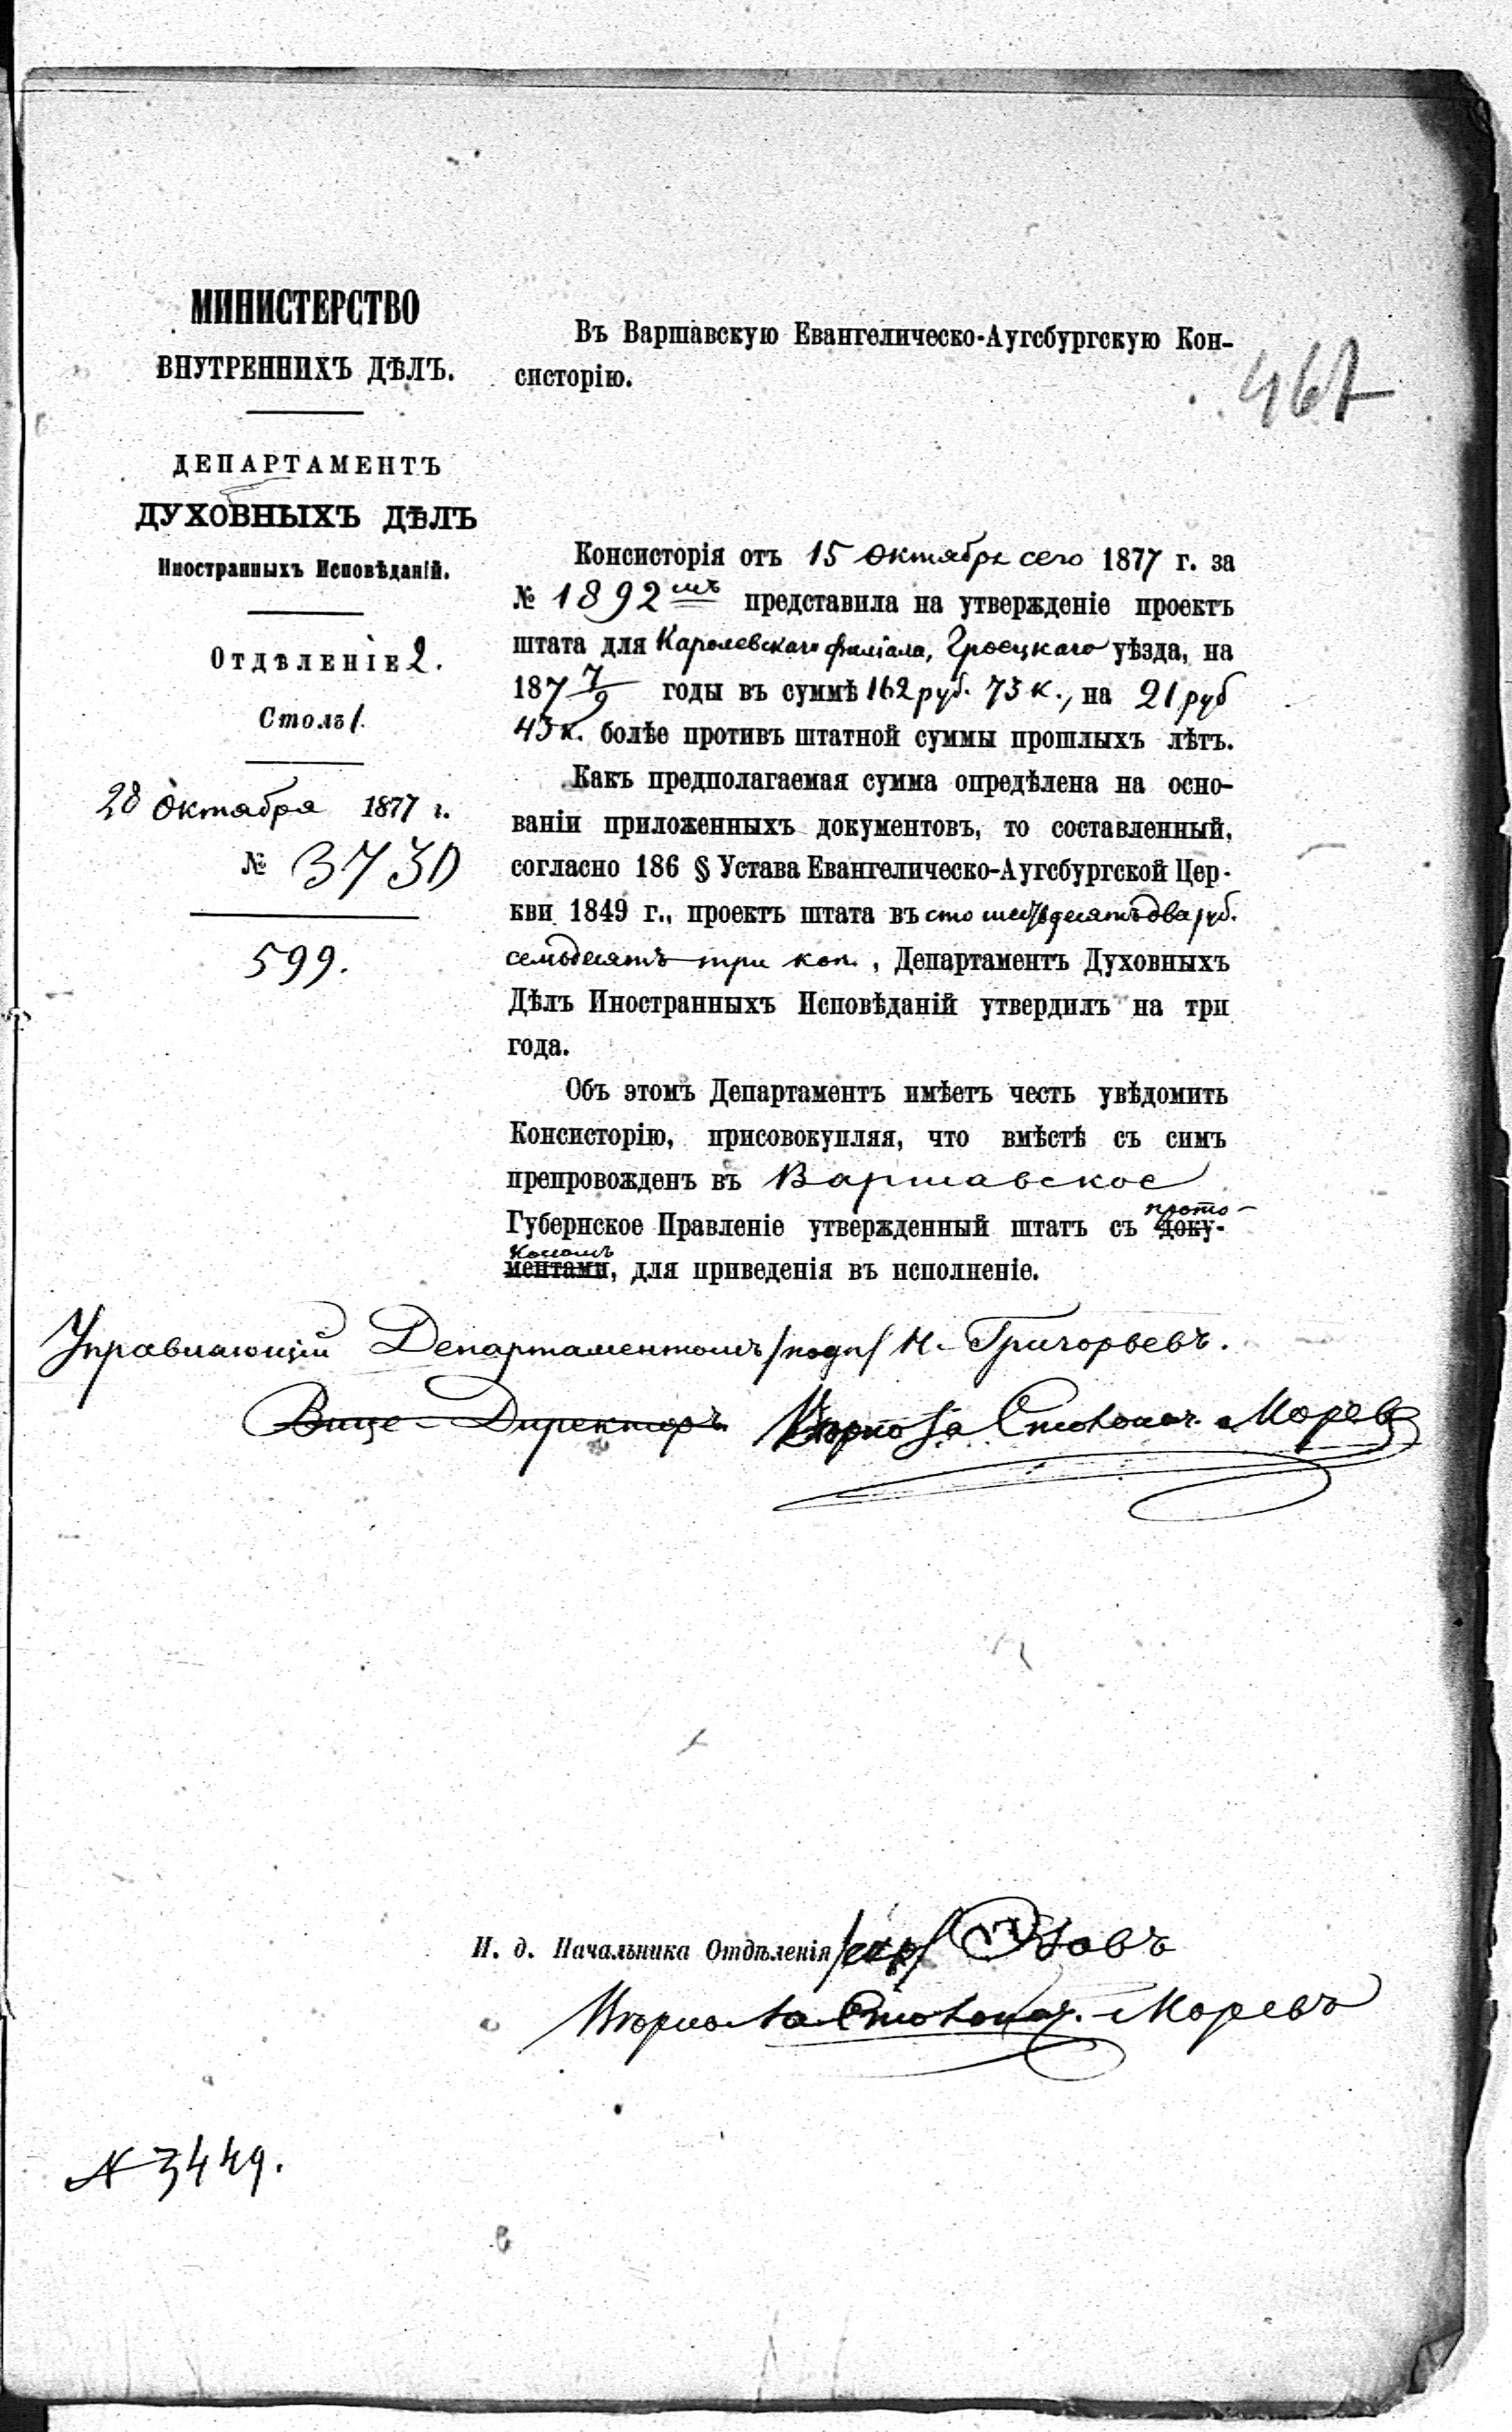 МИНИСТЕРСТВО
ВНУТРЕННИХЪ ДѢЛЪ.
ДЕПАРТАМЕНТЪ
ДУХОВНЫХЪ ДѢЛЪ
Иностранныхъ Исповѣданій.
Отдѣленіе 2.
Столъ 1.
28 Октября 1877 г.
№ 3730
599.
Въ Варшавскую Евангелическо-Аугсбургскую Кон-
систорію.
467
Консисторія отъ 15 Октября сего 1877 г. за
№ 1892 мъ представила на утвержденіе проектъ
штата для Каролевскаго филіала, Гроецкаго уѣзда, на
187 7/9 годы въ суммѣ 162 руб. 73 к., на 21 руб
43 к. болѣе противъ штатной суммы прошлыхъ лѣтъ.
Какъ предполагаемая сумма опредѣлена на осно-
ваніи приложенныхъ документовъ, то составленный,
согласно 186 § Устава Евангелическо-Аугсбургской Цер-
кви 1849 г., проектъ штата въ сто шестьдесятъ два руб.
семьдесятъ три коп., Департаментъ Духовныхъ
Дѣлъ Иностранныхъ Исповѣданій утвердилъ на три
года.
Объ этомъ Департаментъ имѣетъ честь увѣдомить
Консисторію, присовокупляя, что вмѣстѣ съ симъ
препровожденъ въ Варшавское
Губернское Правленіе утвержденный штатъ съ доку- прото-
ментами коломъ, для приведенія въ исполненіе.
Управляющій Департаментомъ /подп/ Н. Григорьевъ.
Вице-Директоръ Вѣрно За Столонач. Моревъ
И. д. Начальника Отдѣленія /скр/
Вѣрно За Столонач. Моревъ
№ 3449.